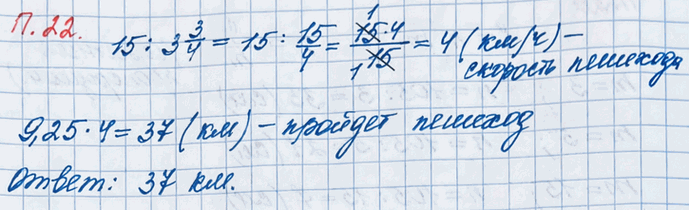 П.22. 15 : 3 3/4 = 15 : 15/4 = 15·4/15 = 4 (км/ч) –
скорость пешехода
9,25 · 4 = 37 (км) – пройдет пешеход
Ответ: 37 км.